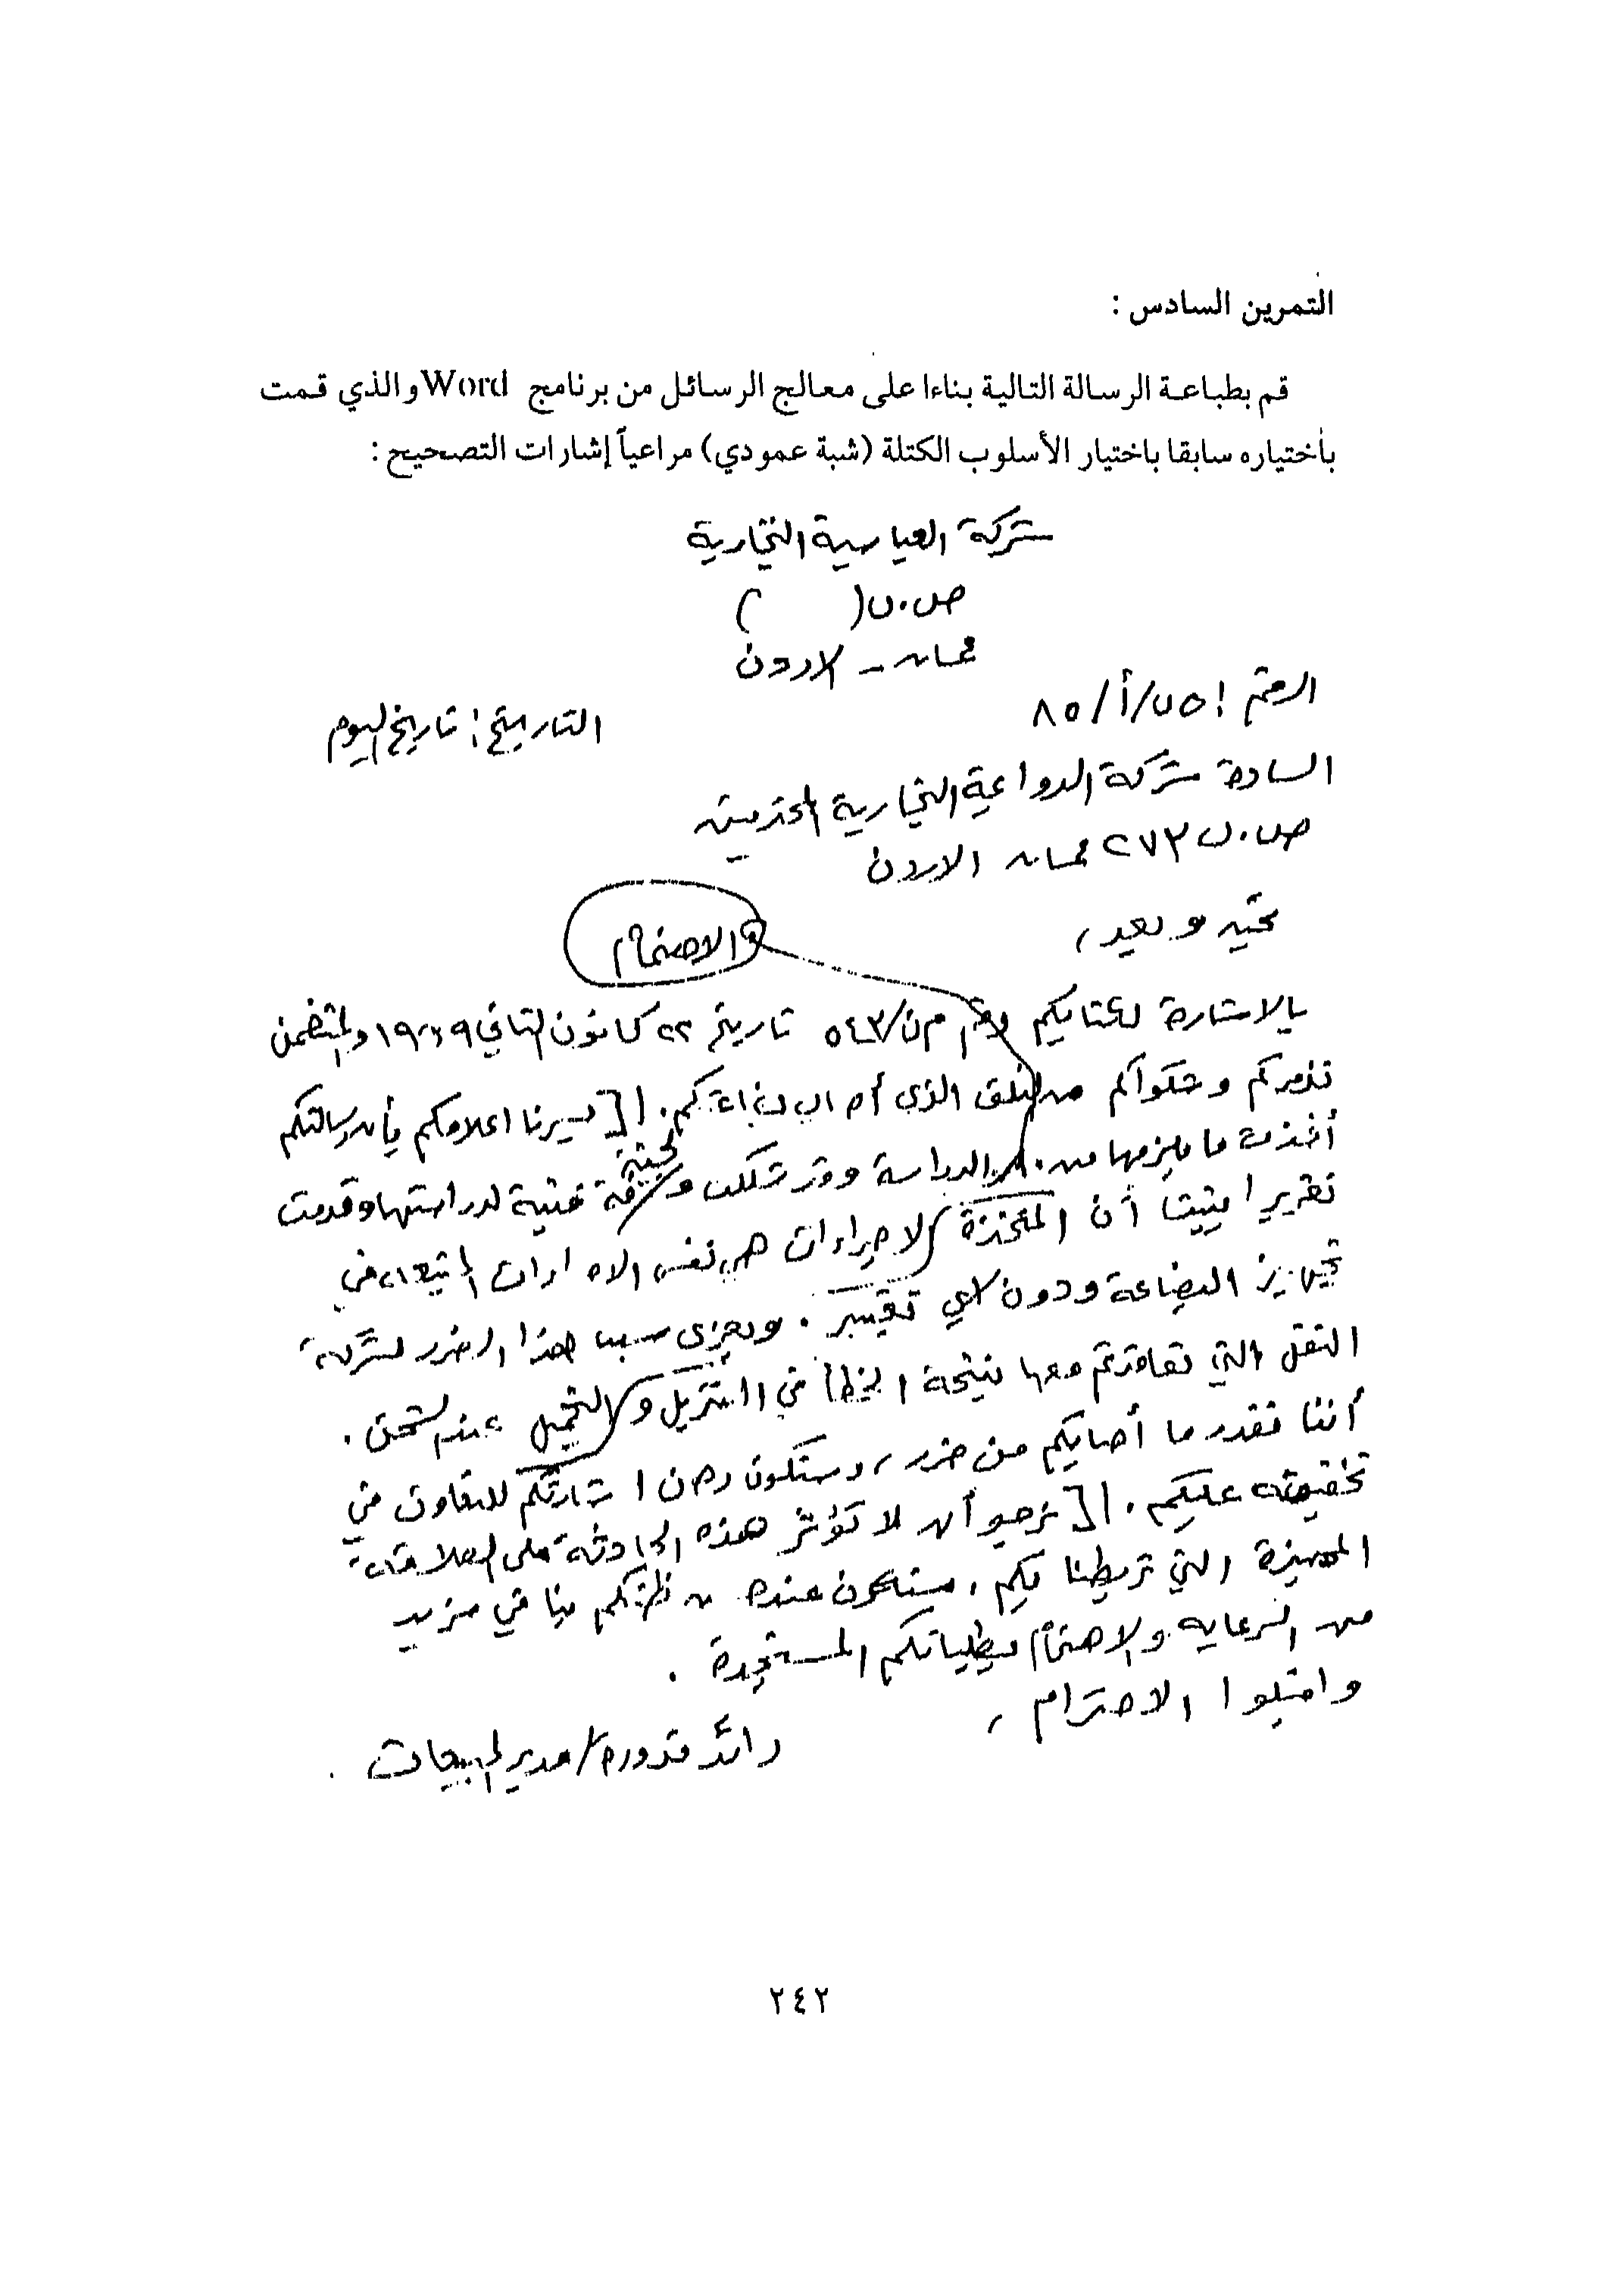 التمرين السادس :
قم بطباعة الرسالة التالية بناءا على معالج الرسائل من برنامج Word والذي قمت
بأختياره سابقا باختيار الأسلوب الكتلة (شبة عمودي) مراعياً إشارات التصحيح :
شركة العباسية التجارية
ص.ب( )
عمان - الاردن
الرقم : ٧٥/أ/٨٥
التاريخ : تاريخ اليوم
السادة شركة الدواعية التجارية المحترمين
ص.ب ٢٧٣ عمان الاردن
تحيه وبعد ،
والاهتمام
بالاشارة لكتابكم رقم م ن/٥٤٣ تاريخ ٢٢ كانون الثاني والمتضمن
تذمركم وشكواكم من التلف الذي أصاب بضاعتكم. [ يسرنا اعلامكم بأن رسالتكم
أخذت ما يلزمها من الدراسة وقد شكلت لجنة فنية لدراستها وقدمت
تقريرا مثبتا أن المتخذة الاجراءات هي نفس المتبعة في
تجهيز البضاعة ودون أي تغيير . ويعزى سبب هذا الضرر لشركة
النقل التي تعاقدتم معها نتيجة الخطأ في التنزيل والتحميل عند الشحن .
أننا نقدر ما أصابكم من ضرر ، وستكون رهن اشارتكم للتعاون في
تخفيفه عليكم . [ نرجو أن لا تؤثر هذه الحادثة على العلاقة
المميزة التي تربطنا بكم ، عند نظرتكم بنا في مزيد
من الرعايه والاهتمام بطلباتكم المستجدة .
واقبلوا الاحترام ،
رائد قدورة / مدير المبيعات .
٢٤٢